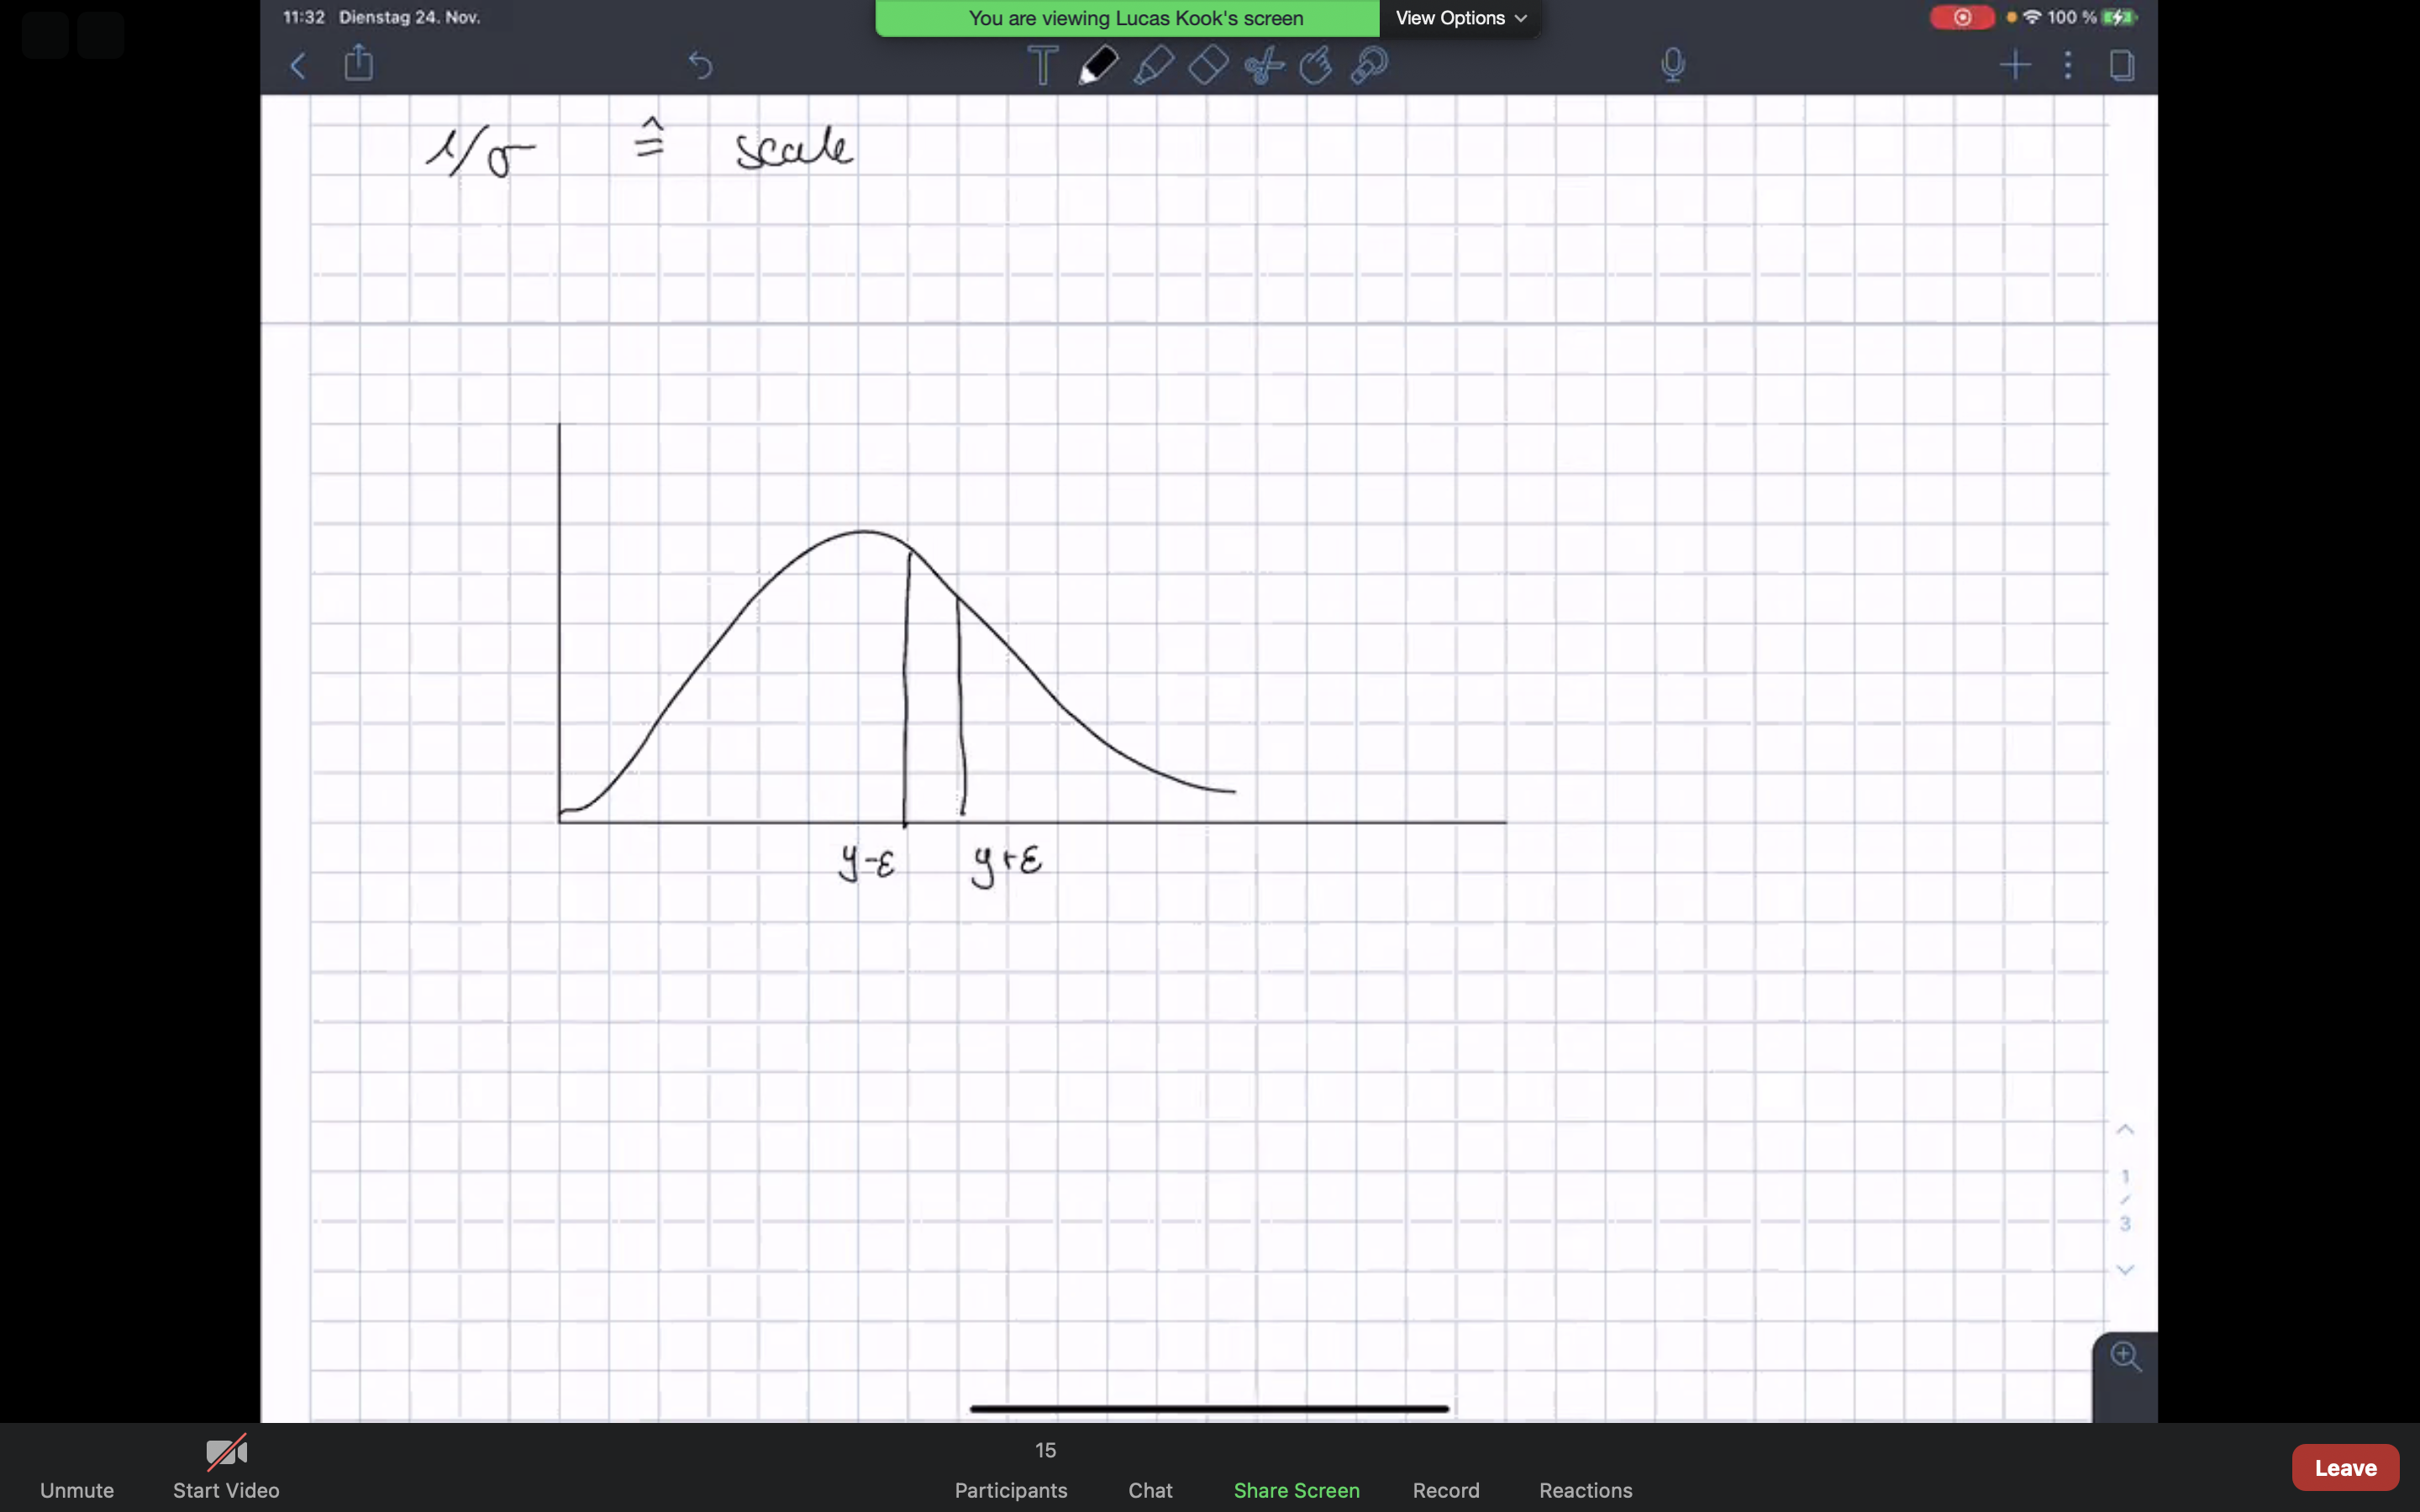 11:32 Dienstag 24. Nov.
You are viewing Lucas Kook's screen
View Options
100 %
T
1/σ ≙ scale
y-ε y+ε
1
/
3
15
Unmute
Start Video
Participants
Chat
Share Screen
Record
Reactions
Leave